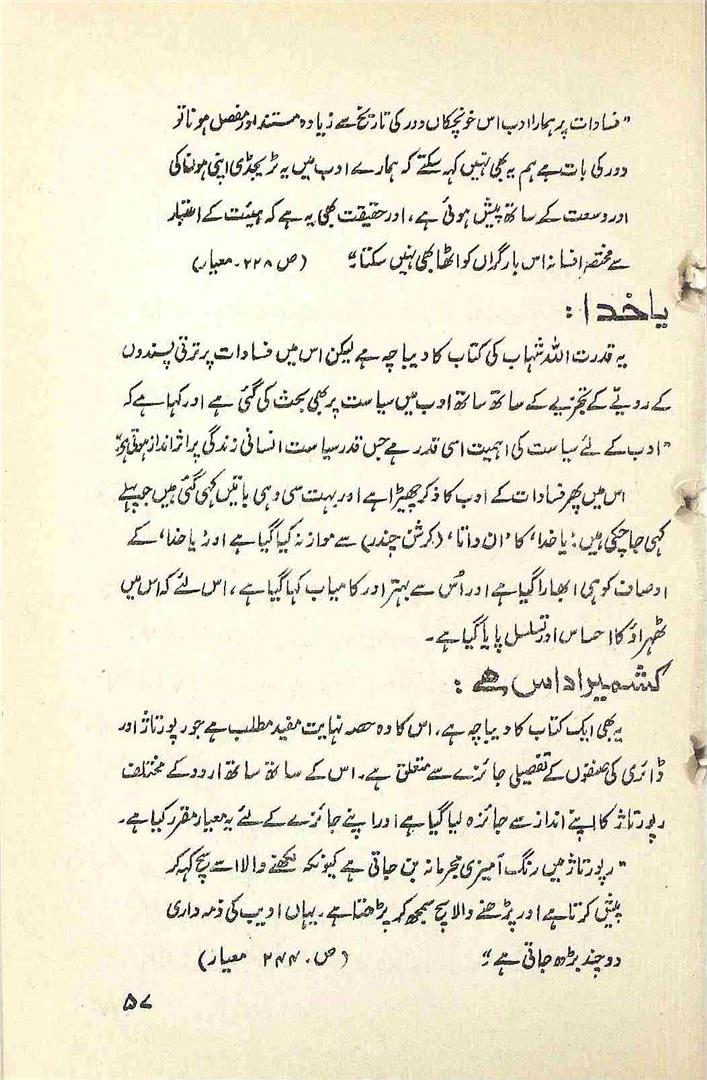 "فسادات پر ہمارا ادب اس خونچکاں دور کی تاریخ سے زیادہ مستند اور مفصل ہونا تو
دور کی بات ہے ہم یہ بھی نہیں کہہ سکتے کہ ہمارے ادب میں یہ ٹریجڈی اپنی ہولناکی
اور وسعت کے ساتھ پیش ہوئی ہے، اور حقیقت بھی یہ ہے کہ ہیئت کے اعتبار
سے مختصر افسانہ اس بارِ گراں کو اٹھا بھی نہیں سکتا۔" (ص ۲۲۸۔ معیار)
یا خدا :
یہ قدرت اللہ شہاب کی کتاب کا دیباچہ ہے لیکن اس میں فسادات پر ترقی پسندوں
کے رویّے کے تجزیے کے ساتھ ساتھ ادب میں سیاست پر بھی بحث کی گئی ہے اور کہا ہے کہ
"ادب کے لئے سیاست کی اہمیت اسی قدر ہے جس قدر سیاست انسانی زندگی پر اثر انداز ہوتی ہے"
اس میں پھر فسادات کے ادب کا ذکر چھیڑا ہے اور بہت سی وہی باتیں کہی گئی ہیں جو پہلے
کہی جا چکی ہیں؛ 'یا خدا' کا 'ان داتا' (کرشن چندر) سے موازنہ کیا گیا ہے اور 'یا خدا' کے
اوصاف کو ہی ابھارا گیا ہے اور اُس سے بہتر اور کامیاب کہا گیا ہے، اس لئے کہ اس میں
ٹھہراؤ کا احساس اور تسلسل پایا گیا ہے۔
کشمیر اداس ہے :
یہ بھی ایک کتاب کا دیباچہ ہے، اس کا وہ حصہ نہایت مفید مطلب ہے جو رپورتاژ اور
ڈائری کی صنفوں کے تفصیلی جائزے سے متعلق ہے۔ اس کے ساتھ ساتھ اردو کے مختلف
رپورتاژ کا اپنے انداز سے جائزہ لیا گیا ہے اور اپنے جائزے کے لئے یہ معیار مقرر کیا ہے۔
"رپورتاژ میں رنگ آمیزی مجرمانہ بن جاتی ہے کیونکہ لکھنے والا اسے سچ کہہ کر
پیش کرتا ہے اور پڑھنے والا سچ سمجھ کر پڑھتا ہے۔ یہاں ادیب کی ذمہ داری
دو چند بڑھ جاتی ہے۔" (ص۔ ۲۴۴ معیار)
۵۷